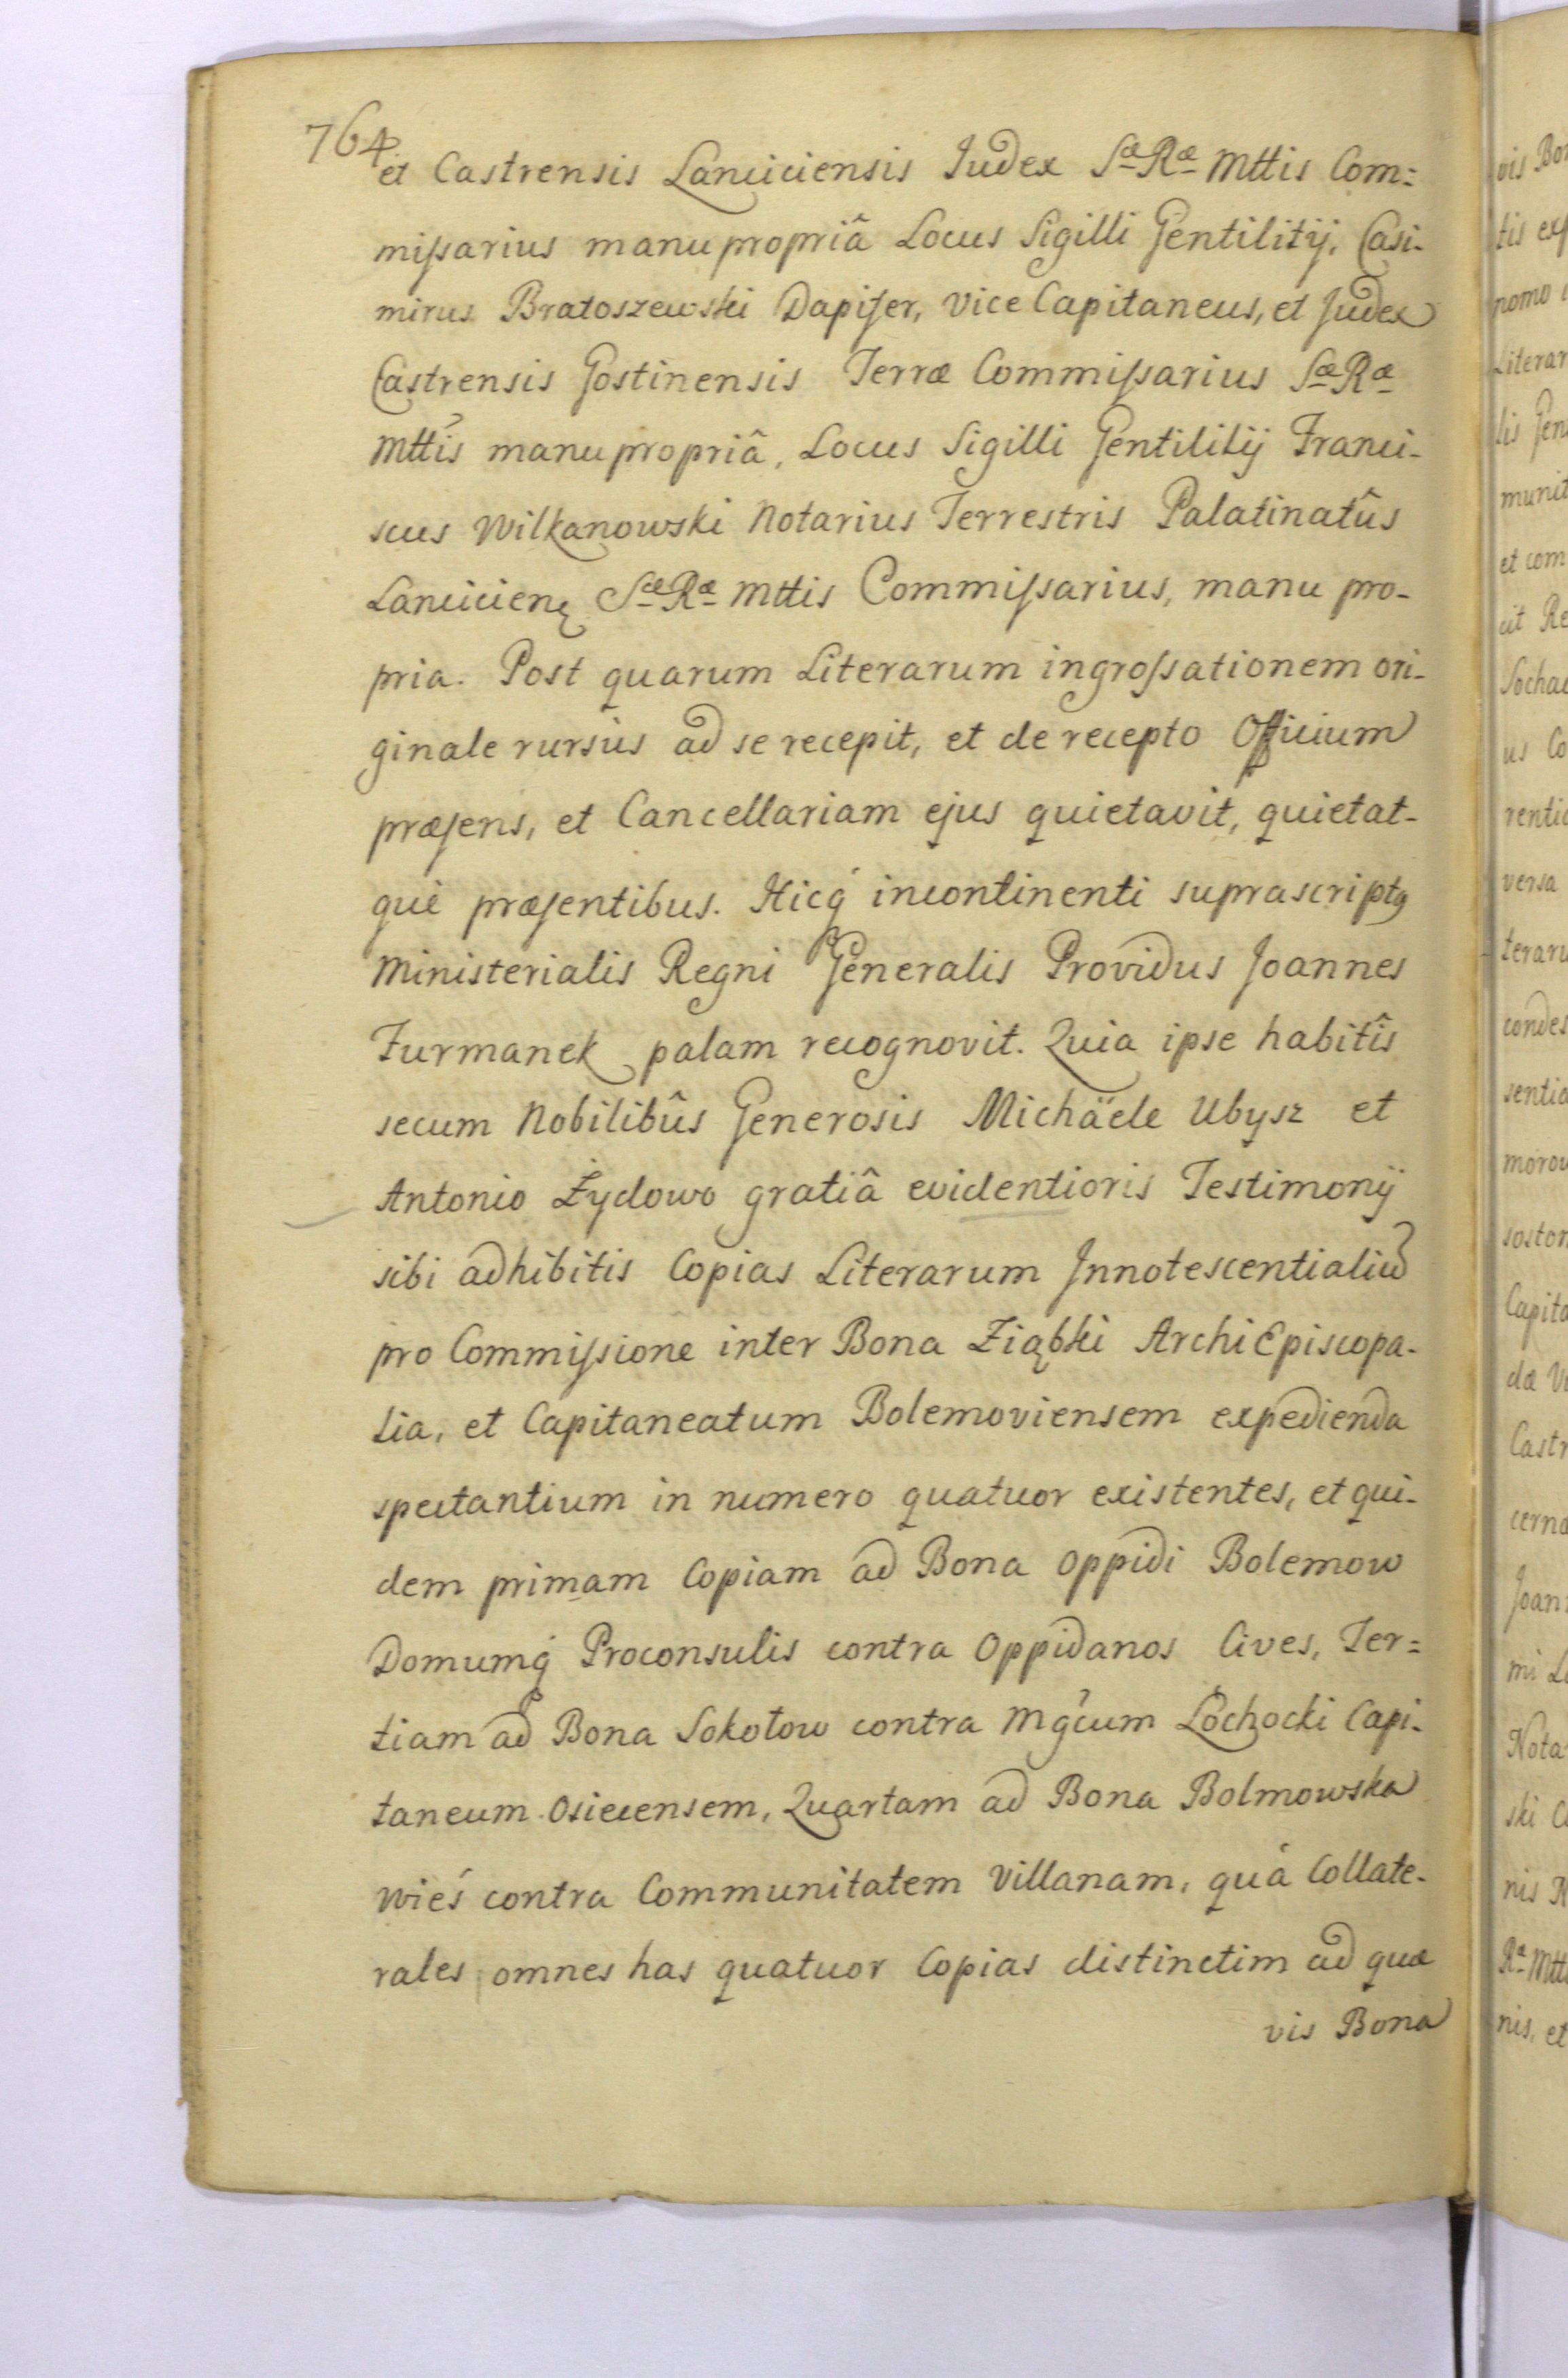 764
et Castrensis Lanciciensis Judex Sæ Ræ Mttis Com=
missarius manu propriâ Locus Sigilli Gentilitij, Casi-
mirus Bratoszewski Dapifer, vice Capitaneus, et Judex
Castrensis Gostinensis Terræ Commissarius Sæ Ræ
Mttis manu propriâ, Locus Sigilli Gentilitij Franci-
scus Wilkanowski Notarius Terrestris Palatinatûs
Lancicien Sæ Ræ Mttis Commissarius, manu pro-
pria. Post quarum Literarum ingrossationem ori-
ginale rursus ad se recepit, et de recepto Officium
præsens, et Cancellariam ejus quietavit, quietat-
què præsentibus. Hicq́ incontinenti suprascriptg
Ministerialis Regni Generalis Providus Joannes
Furmanek palam recognovit. Quia ipse habitîs
secum Nobilibûs Generosis Michäele Ubysz et
Antonio Żydowo gratiâ evidentioris Testimonÿ
sibi adhibitis Copias Literarum Innotescentialiu
pro Commissione inter Bona Ziąbki ArchiEpiscopa-
lia, et Capitaneatum Bolemoviensem expedienda
spectantium in numero quatuor existentes, et qui-
dem primam Copiam ad Bona Oppidi Bolemow
Domumq́ Proconsulis contra Oppidanos Cives, Ter=
tiam ad Bona Sokołow contra Mgcum Łochocki Capi-
taneum Osiecensem, Quartam ad Bona Bolmowska
wieś contra Communitatem Villanam, quá Collate-
rales omnes has quatuor Copias distinctim ad quæ
vis Bona
vis Bon
tis exp
nomo
Literar
lis Gen
munit
et com
cit Re
Sochac
us Co
rentia
versa
teraru
condes
sentia
morow
soston
Capita
dæ
Castr
cerna
Joann
mi
Nota
ski
nis
Ra Mtt
nis, et